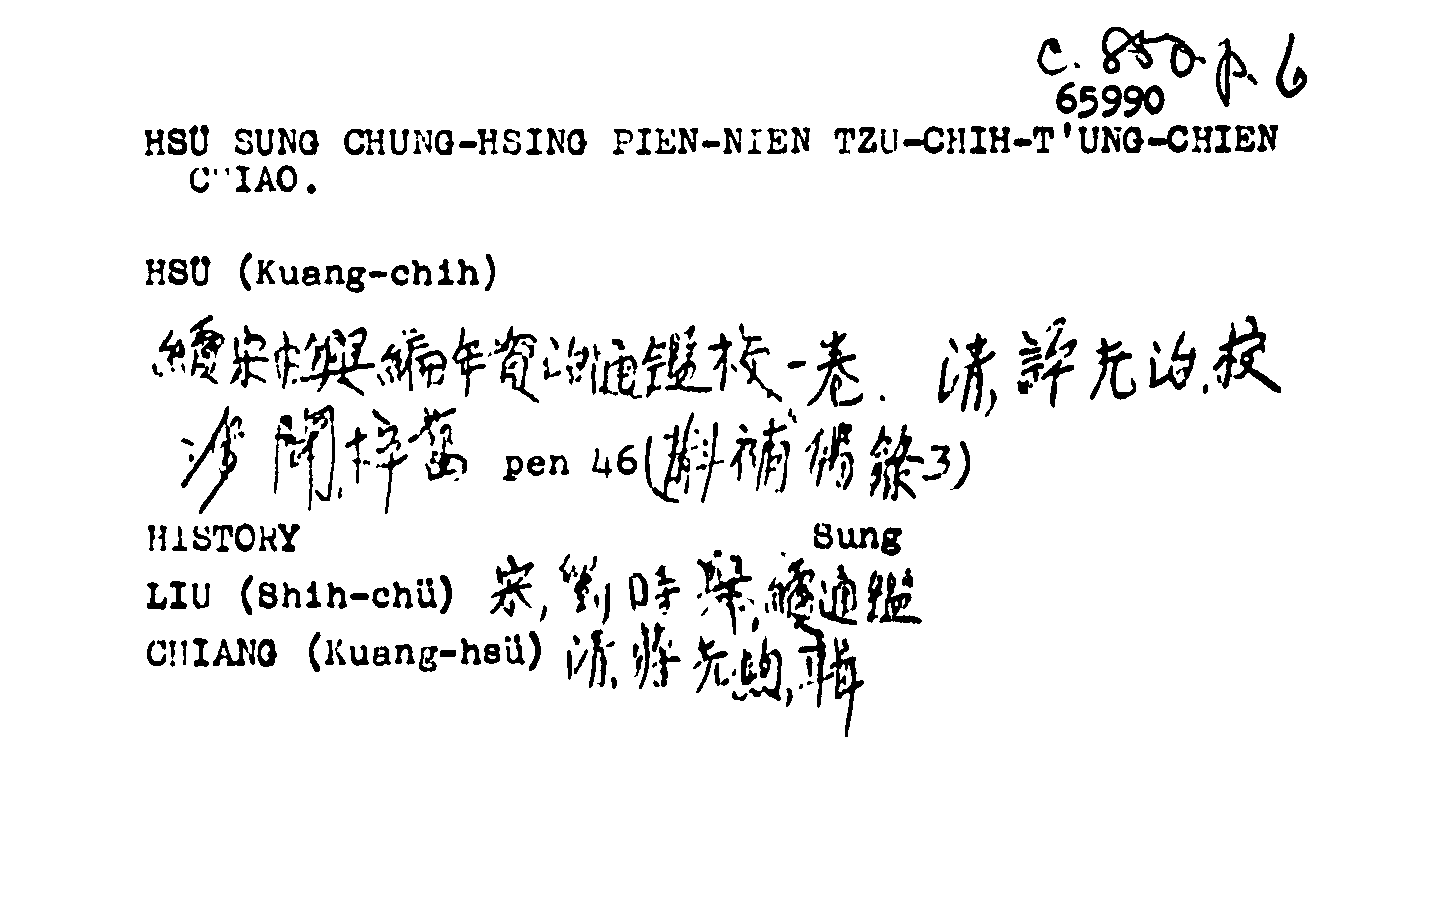 c. 850. p. 6
65990
HSÜ SUNG CHUNG-HSING PIEN-NIEN TZU-CHIH-T'UNG-CHIEN
CHIAO.
HSÜ (Kuang-chih)
續宋中興編年資治通鑑校一卷. 清,許光治,校
涉聞梓舊 pen 46(斠補隅錄3)
HISTORY Sung
LIU (Shih-chü) 宋,劉時舉,續通鑑
CHIANG (Kuang-hsü) 清,蔣光煦,輯